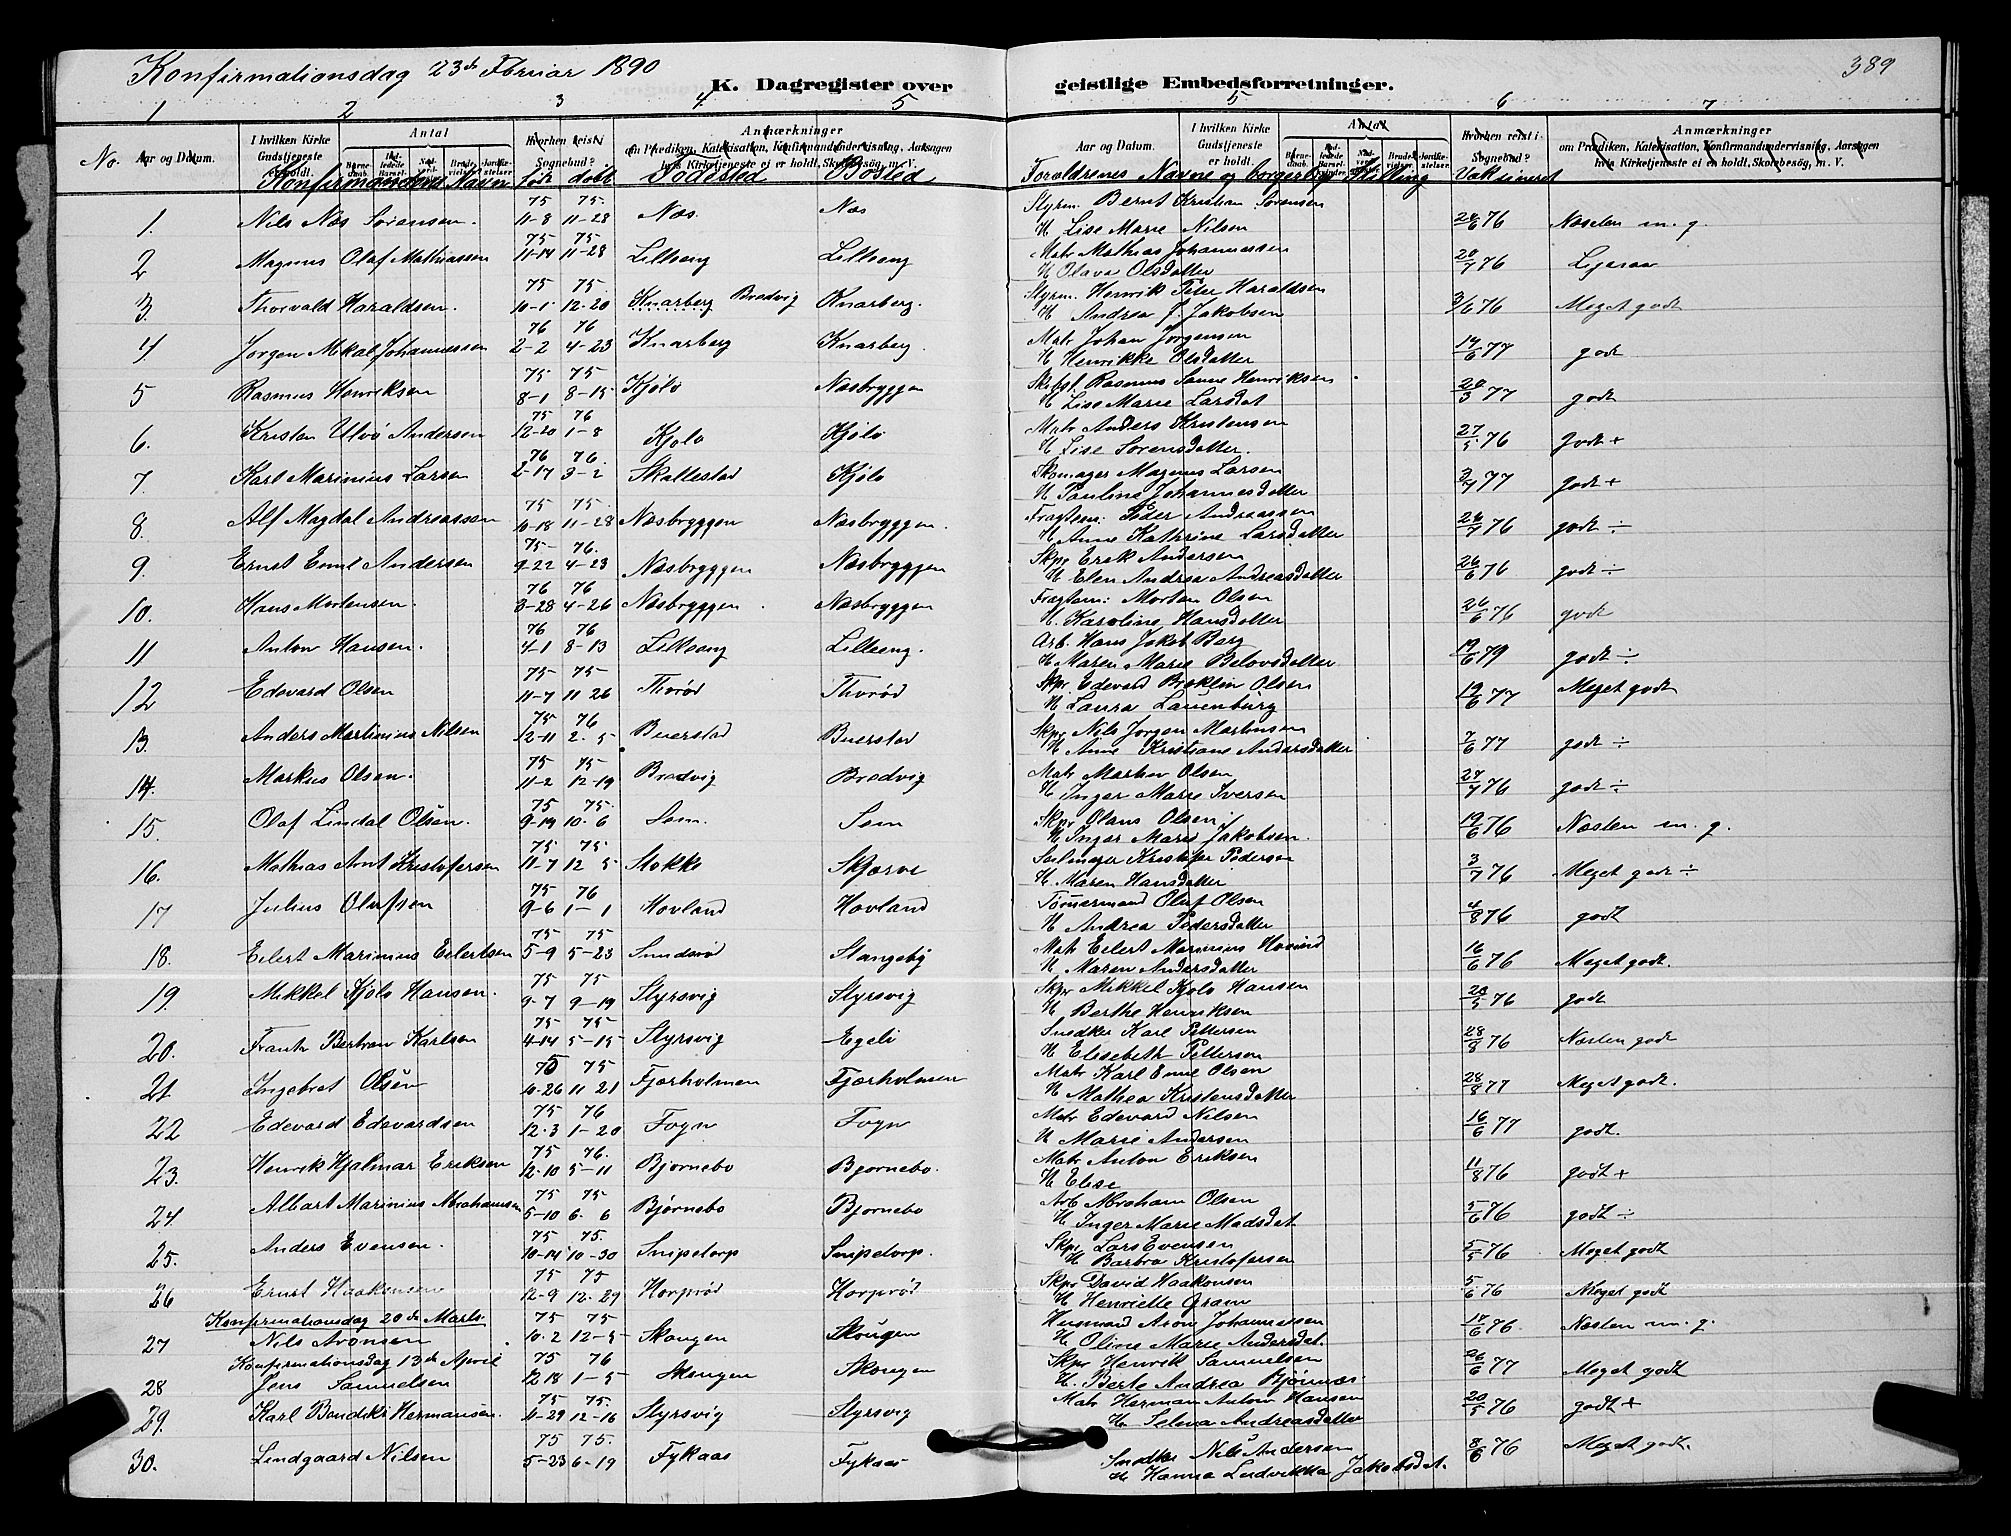 Konfirmationsdag 23de Februar 1890
K. Dagregister over geistlige Embedsforretninger.
389
1 2 3 4 5 5 6 7
No. Aar og Datum. I hvilken Kirke Gudstjeneste er holdt. Antal Hvorhen reist i Sognebud? Anmærkninger om Prædiken, Katekisation, Konfirmandundervisning, Aarsagen hvis Kirketjeneste ei er holdt, Skolebesög, m. V.
Aar og Datum. I hvilken Kirke Gudstjeneste er holdt. Antal Hvorhen reist i Sognebud? Anmærkninger om Prædiken, Katekisation, Konfirmandundervisning, Aarsagen hvis Kirketjeneste ei er holdt, Skolebesög, m. V.
Konfirmandens Navn født døbt Fødested Bosted Forældrenes Navne og borgerlige Stilling Vaksineret
1. Nils Næs Sørensen. 75 11-8 75 11-28 Næs. Næs Styrm. Bernt Kristian Sørensen H Lise Marie Nilsen 76 Næsten m. g.
2 Magnus Olaf Mathiassen 75 11-14 75 11-28 Lilleeng Lilleeng Matr Mathias Johannessen H Olava Olsdatter 20/7 76
3. Thorvald Haraldsen. 75 10-1 75 12-20 Knarberg Bredvig Knarberg. Styrm. Henrik Peter Haraldsen H Andrea J. Jakobsen 3/6 76 Meget godt
4 Jørgen Mikal Johannessen 76 2-2 76 4-23 Knarberg Knarberg. Matr Johan Jørgensen H Henrikke Olsdatter 19/6 77 godt
5 Rasmus Henriksen 75 8-1 75 8-15 Kjølø Næsbryggen Skibst. Rasmus Sanne Henriksen H Lise Marie Larsdat 20/3 77 godt
6. Kristen Ulvø Andersen 75 12-20 76 1-8 Kjølø Kjølø Matr Anders Kristensen H Lise Sørensdatter. 27/5 76 godt +
7. Karl Marinius Larsen 76 2-17 76 3-2 Skallestad Kjølø Skomager Magnus Larsen H Pauline Johannesdatter 3/7 77 godt +
8. Alf Magdal Andreassen 75 10-18 75 11-28 Næsbryggen Næsbryggen. Fragtem: Peder Andreassen H Anne Kathrine Larsdatter 26/7 76 godt ÷
9. Ernst Emil Andersen 75 9-22 76 4-23 Næsbryggen Næsbryggen Skpr Erik Andersen H Elen Andrea Andreasdatter 26/6 76 godt ÷
10. Hans Mortensen. 76 3-28 76 4-26 Næsbryggen. Næsbryggen Fragtem: Morten Olsen H. Karoline Hansdatter 26/6 76 godt
11 Anton Hansen. 76 4-1 76 8-13 Lilleeng Lilleeng. Arb. Hans Jakob Berg H Maren Marie Belovsdatter 19/6 79 godt ÷
12 Edevard Olsen 75 11-7 75 11 26 Thorød Thorød Skpr Edevard Broklin Olsen H Laura Lauenburg 19/6 77 Meget godt
13. Anders Martinius Nilsen 75 12-11 76 2-5 Buerstad Buerstad Skpr Nils Jørgen Martinsen H Anne Kristiane Andersdatter 7/6 77 godt ÷
14. Markus Olsen. 75 11-2 75 12-19 Bredvig Bredvig Matr Martin Olsen H Inger Marie Iversen 27/7 76 godt ÷
15. Olaf Lindal Olsen. 75 9-19 75 10-6 Sem. Sem Skpr Olaus Olsen. H Inger Marie Jakobsen. 19/6 76 Næsten m. g.
16. Mathias Arnt Kristofersen 75 11-7 75 12 5 Stokke Skjærve Seilmager Kristofer Pedersen H. Maren Hansdatter 3/7 76 Meget godt ÷
17 Julius Olufsen 75 9-6 76 1-1 Hovland Hovland Tømermand Oluf Olsen H Andrea Pedersdatter 4/8 76 godt
18. Eilert Marinius Eilertsen 75 5-9 75 5-23 Sunderød Stangeby Matr Eilert Marinius H Maren Andersdatter 16/6 76 Meget godt.
19. Mikkel Kjølø Hansen. 75 9-7 75 9-19 Styrsvig Styrsvig Skpr Mikkel Kjølø Hansen H Berthe Henriksen 20/5 76 godt
20. Frantz Bertran Karlsen 75 4-14 75 5-15 Styrsvig Egeli Snedker Karl Pettersen H Elisebeth Pettersen 28/8 76 Næsten godt
21 Ingebret Olsen 75 10-26 75 11 21 Fjærholmen Fjærholmen Matr Karl Emil Olsen H Mathea Kristensdatter 28/8 77 Meget godt.
22 Edevard Edevardsen 75 12-3 76 1-20 Føyn Føyn Matr Edevard Nilsen H Marie Andersen 16/6 77 godt.
23. Henrik Hjalmar Eriksen 75 12-10 76. 5-11 Bjørnebo Bjørnebo. Matr Anton Eriksen H Elise 11/8 76 godt +
24. Albert Marinius Abrahamsen 75 5-10 75 6-6 Bjørnebo Bjørnebo Arb Abraham Olsen H Inger Marie Madsdat 5/6 76 godt ÷
25. Anders Evensen. 75 10-14 75. 10-30 Snipetorp Snipetorp. Skpr Lars Evensen H Barbra Kristofersen 5/5 76 Meget godt
26 Ernst Haakonsen 75 12-9 75 12-29 Horprød Horprød Skpr David Haakonsen H Henriette Gram 5/6 76 Meget godt
Konfirmationsdag 20de Marts.
27 Nils Aronsen 75 10-2 75 12-5 Skougen Skougen Husmand Aron Johannessen H Oline Marie Andersdat. 17/6 76 Næsten m. g.
Konfirmationsdag 13de April
28 Jens Samuelsen 75 12 18 76 1-5 Skougen Skougen Skpr Henrik Samuelsen H. Berte Andrea Bjønnæs. 26/6 77 Meget godt
29. Karl Bendiks Hermansen. 75 11-29 75. 12-16 Styrsvig Styrsvig Matr Herman Anton Hansen H Selma Andreasdatter 20/5 76 godt +
30. Lindgaard Nilsen 75 5-23 75. 6-19 Fykaas Fykaas Snedker Nils Andersen H Hanna Ludvikka Jakobsdat. 8/6 76 Meget godt.